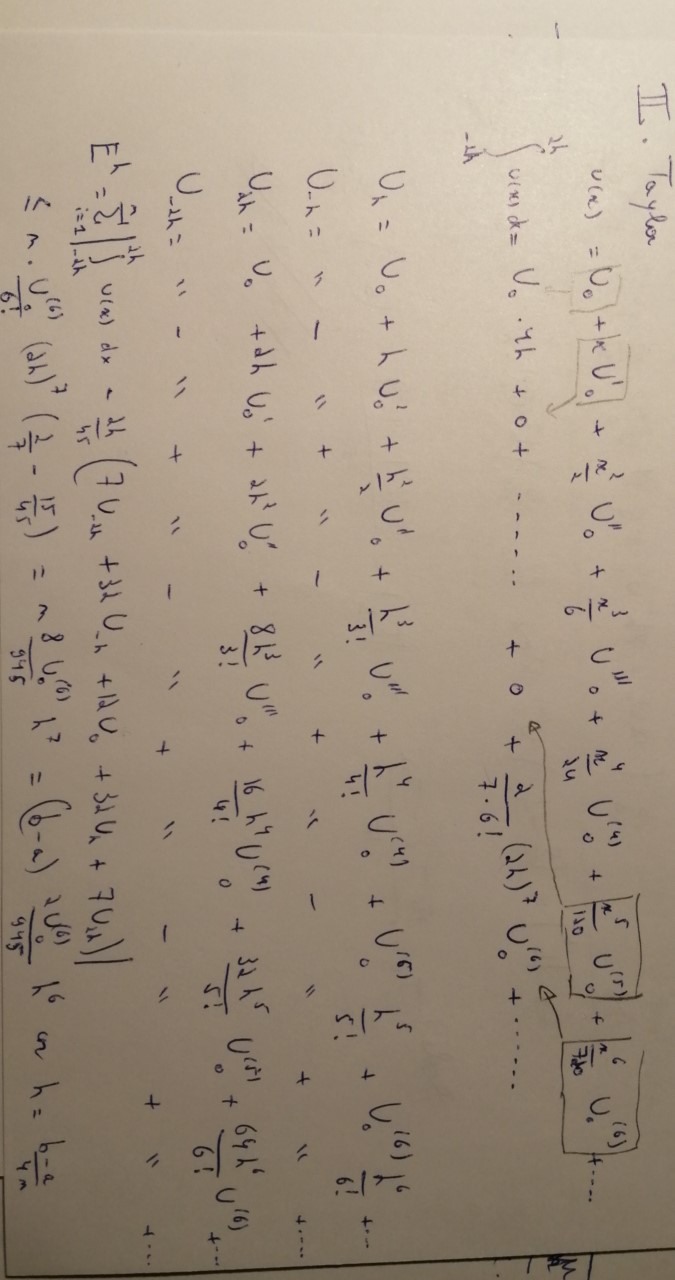 II. Taylor
u(x) = U₀ + x U'₀ + x²/2 U''₀ + x³/6 U'''₀ + x⁴/24 U₀⁽⁴⁾ + x⁵/120 U₀⁽⁵⁾ + x⁶/720 U₀⁽⁶⁾ + ....
∫₋₂ₕ²ʰ u(x) dx = U₀ · 4h + 0 + ------ + 0 + 2/(7·6!) (2h)⁷ U₀⁽⁶⁾ + .......
Uₕ = U₀ + h U₀' + h²/2 U''₀ + h³/3! U'''₀ + h⁴/4! U₀⁽⁴⁾ + U₀⁽⁵⁾ h⁵/5! + U₀⁽⁶⁾ h⁶/6! + ...
U₋ₕ = " - " + " - " + " - " + " + ....
U₂ₕ = U₀ + 2h U₀' + 2h² U₀'' + 8h³/3! U'''₀ + 16/4! h⁴ U₀⁽⁴⁾ + 32h⁵/5! U₀⁽⁵⁾ + 64h⁶/6! U⁽⁶⁾ + ...
U₋₂ₕ = " - " + " - " + " - " + " + ...
Eʰ = Σᵢ₌₁ⁿ | ∫₋₂ₕ²ʰ u(x) dx - 2h/45 (7U₋₂ₕ + 32U₋ₕ + 12U₀ + 32Uₕ + 7U₂ₕ) |
≤ n · U₀⁽⁶⁾/6! (2h)⁷ (2/7 - 15/45) = n 8U₀⁽⁶⁾/945 h⁷ = (b-a) 2U₀⁽⁶⁾/945 h⁶ h = (b-a)/4n